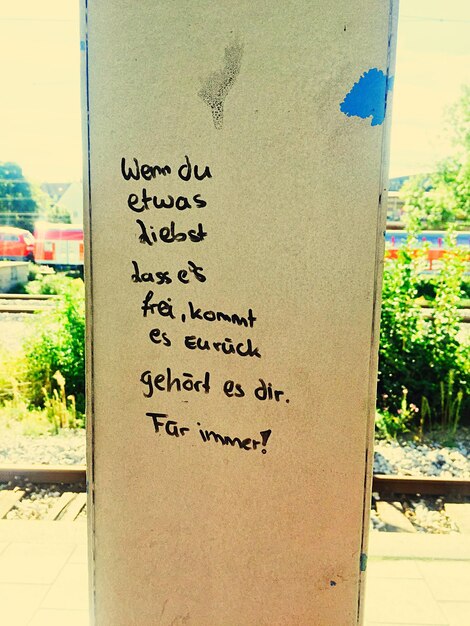 Wenn du
etwas
liebst
lass es
frei, kommt
es zurück
gehört es dir.
Für immer!